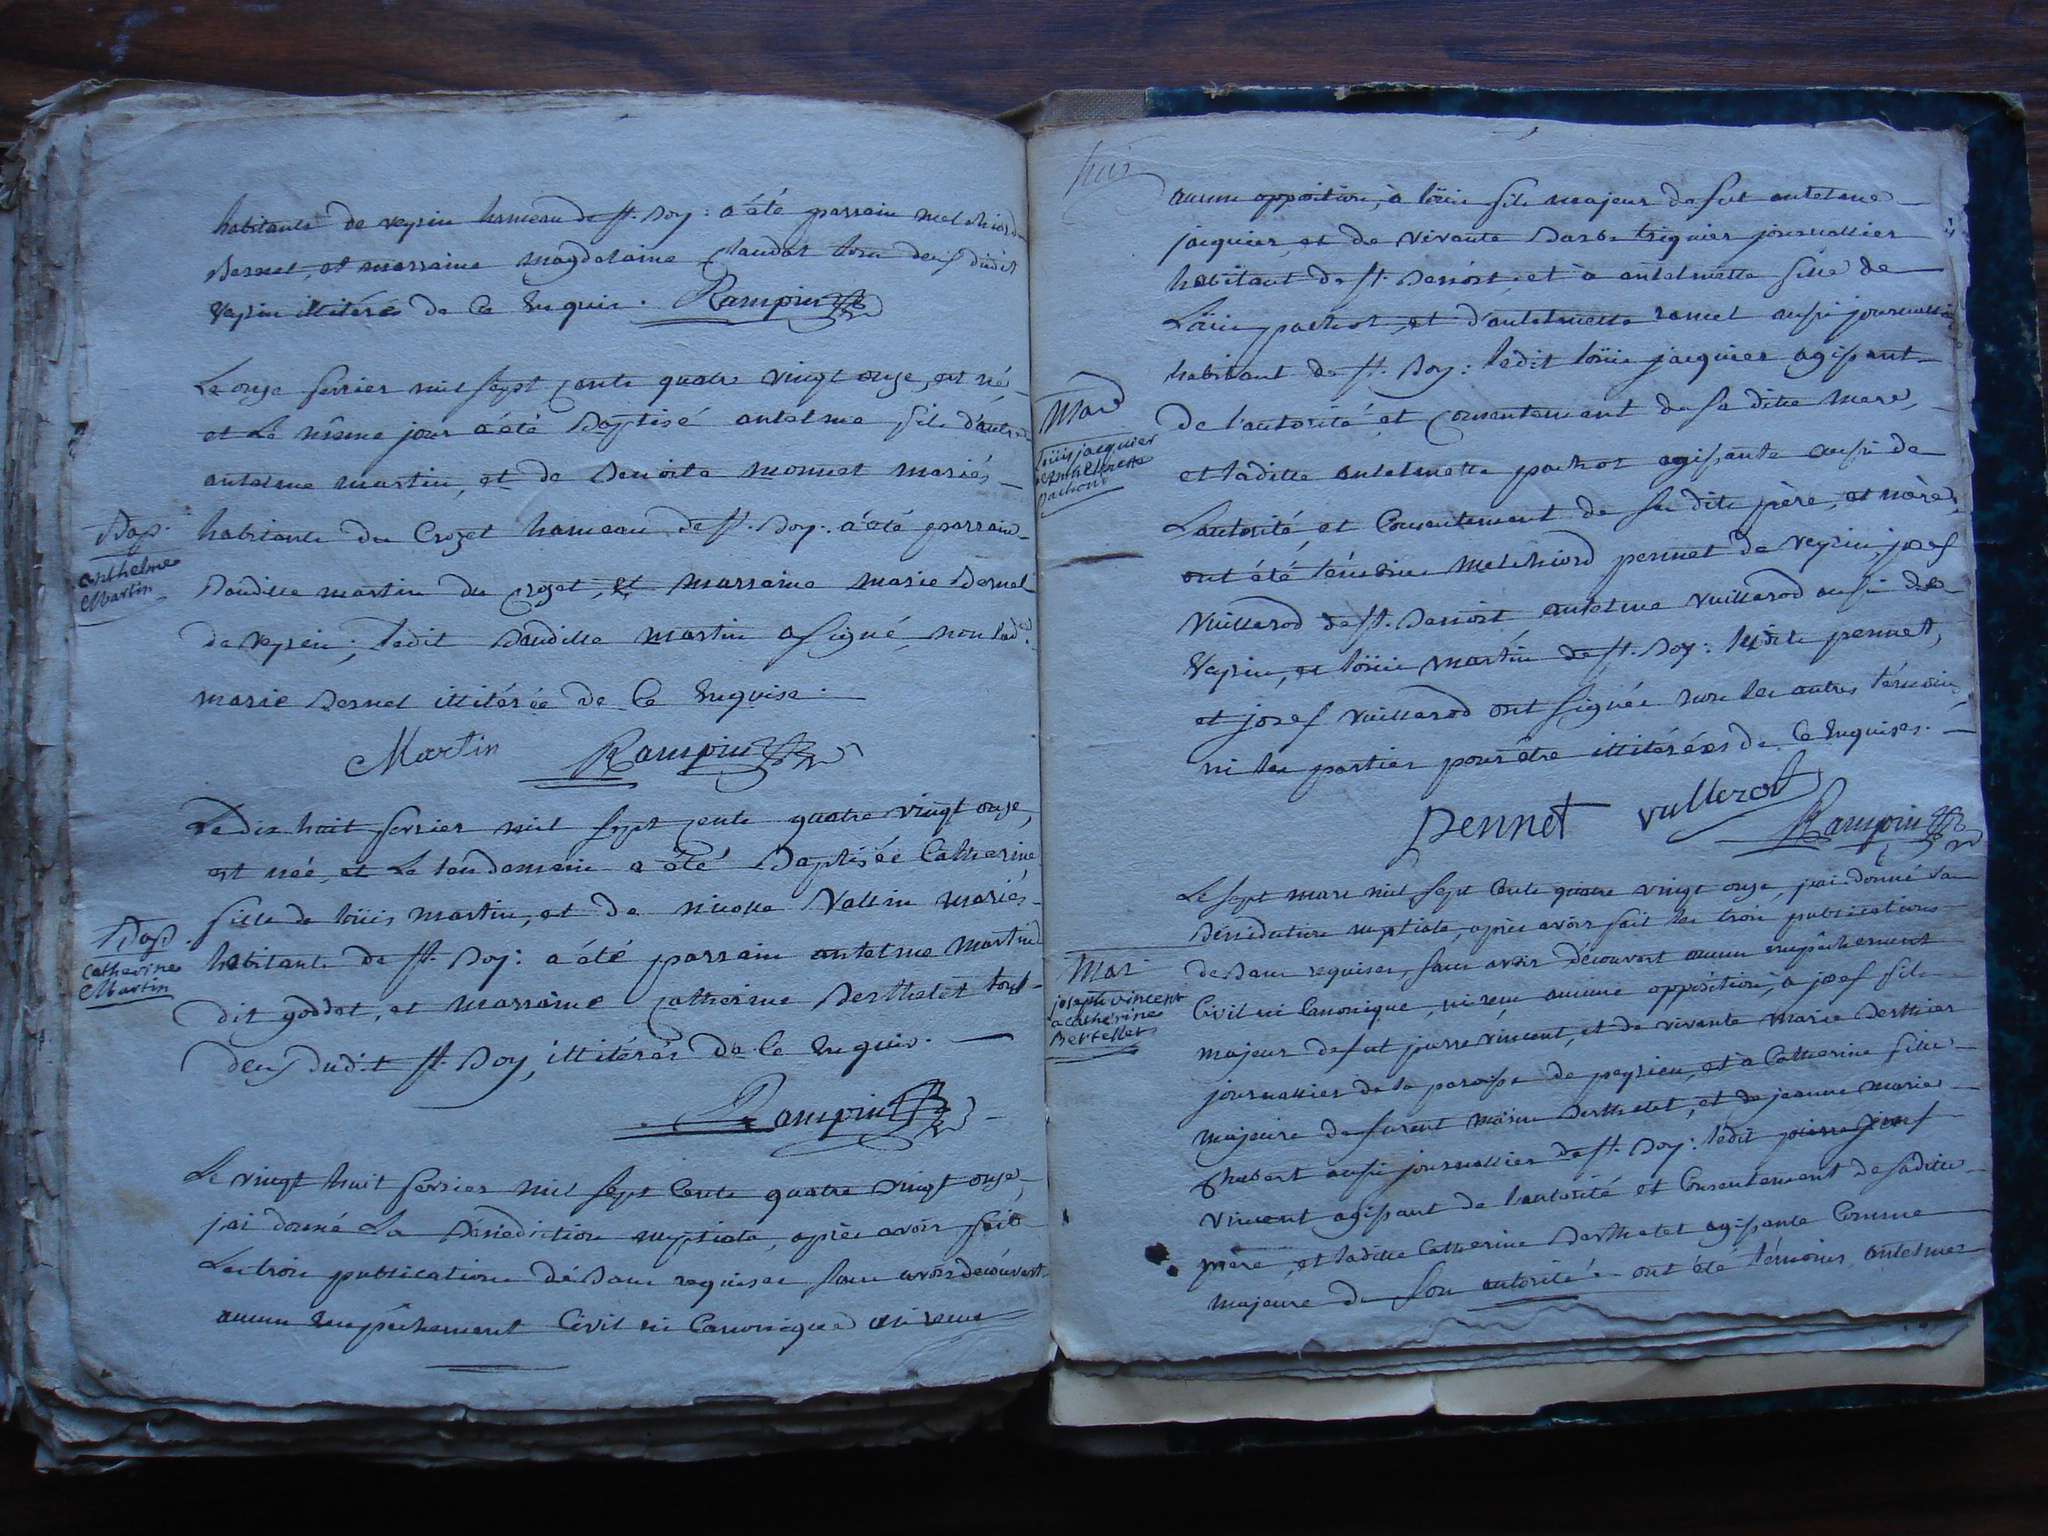 habitants de veyrin hameau de st. Boy: a été parrain melchiord
Bernel, et marraine magdelaine Claudat tous deux dudit
veyrin illitérés de ce enquis. Rampin
Le onze fevrier mil sept cents quatre vingt onze, est né
et Le même jour a été Baptisé antelme fils d'autre
antelme martin, et de Benoite monnet mariés
Bap.
Anthelme
Martin
habitants du Crozet hameau de st. Boy. a été parrain
Baudille martin du crozet, et marraine marie Bernel
de veyrin; ledit Baudille martin a signé non lad.
marie Bernel illitérée de ce enquise.
Martin Rampin
Le dix huit fevrier mil sept cents quatre vingt onze,
est née, et Le lendemain a été Baptisée Catherine
fille de loüis martin, et de nicolle Vallin mariés
Bap.
Catherine
Martin
habitants de st. Boy: a été parrain antelme martin
dit goddet, et marraine Catherine Berthelet tous
deux dudit st. Boy, illitérés de ce enquis.
Rampin
Le vingt huit fevrier mil sept Cents quatre vingt onze,
jai donné La Bénédiction nuptiale, après avoir fait
Les trois publications de Bans requises sans avoir découvert
aucun empêchement Civil ni Canonique ni reçu
huit
aucun opposition, à loüis fils majeur de fut antelme
jacquier, et de vivante Barbe triquier journallier
habitant de st. Benoit, et à antelmette fille de
Loüis pachot, et d'antelmette ramel aussi journallier
habitant de st. Boy: ledit loüis jacquier agissant
Mar
Loüis jacquier
et Anthelmette
pachoud
de l'autorité et consentement de sa ditte mere,
et laditte antelmette pachot agissante aussi de
Lautorité, et Consentement de ses dits père, et mère,
ont été témoins melchiord pennet de veyrin, josef
vuillerod de st. Benoit antelme vuillerod aussi de
veyrin, et loüis martin de st. Boy: lesdits pennet,
et josef vuillerod ont signés non les autres témoins,
ni les parties pour être illitérées de ce enquises.
pennet vullerot Rampin
Le sept mars mil sept Cents quatre vingt onze, jai donné la
Bénédiction nuptiale, après avoir fait les trois publications
de Bans requises, sans avoir découvert aucun empêchement
Mar
joseph vincent
a Cathérine
Bertellet
Civil ni Canonique, ni reçu aucune opposition, à josef fils
majeur de fut pierre vincent, et de vivante marie Berthier
journallier de la paroisse de peyrieu, et à Catherine fille
majeure de furent Berthelet, et de jeanne marie
Chabert aussi journallier de st. Boy: ledit pierre josef
vincent agissant de l'autorité et Consentement de saditte
mère, et laditte Catherine Berthelet agissante Comme
majeure de son autorité. ont été témoins antelme